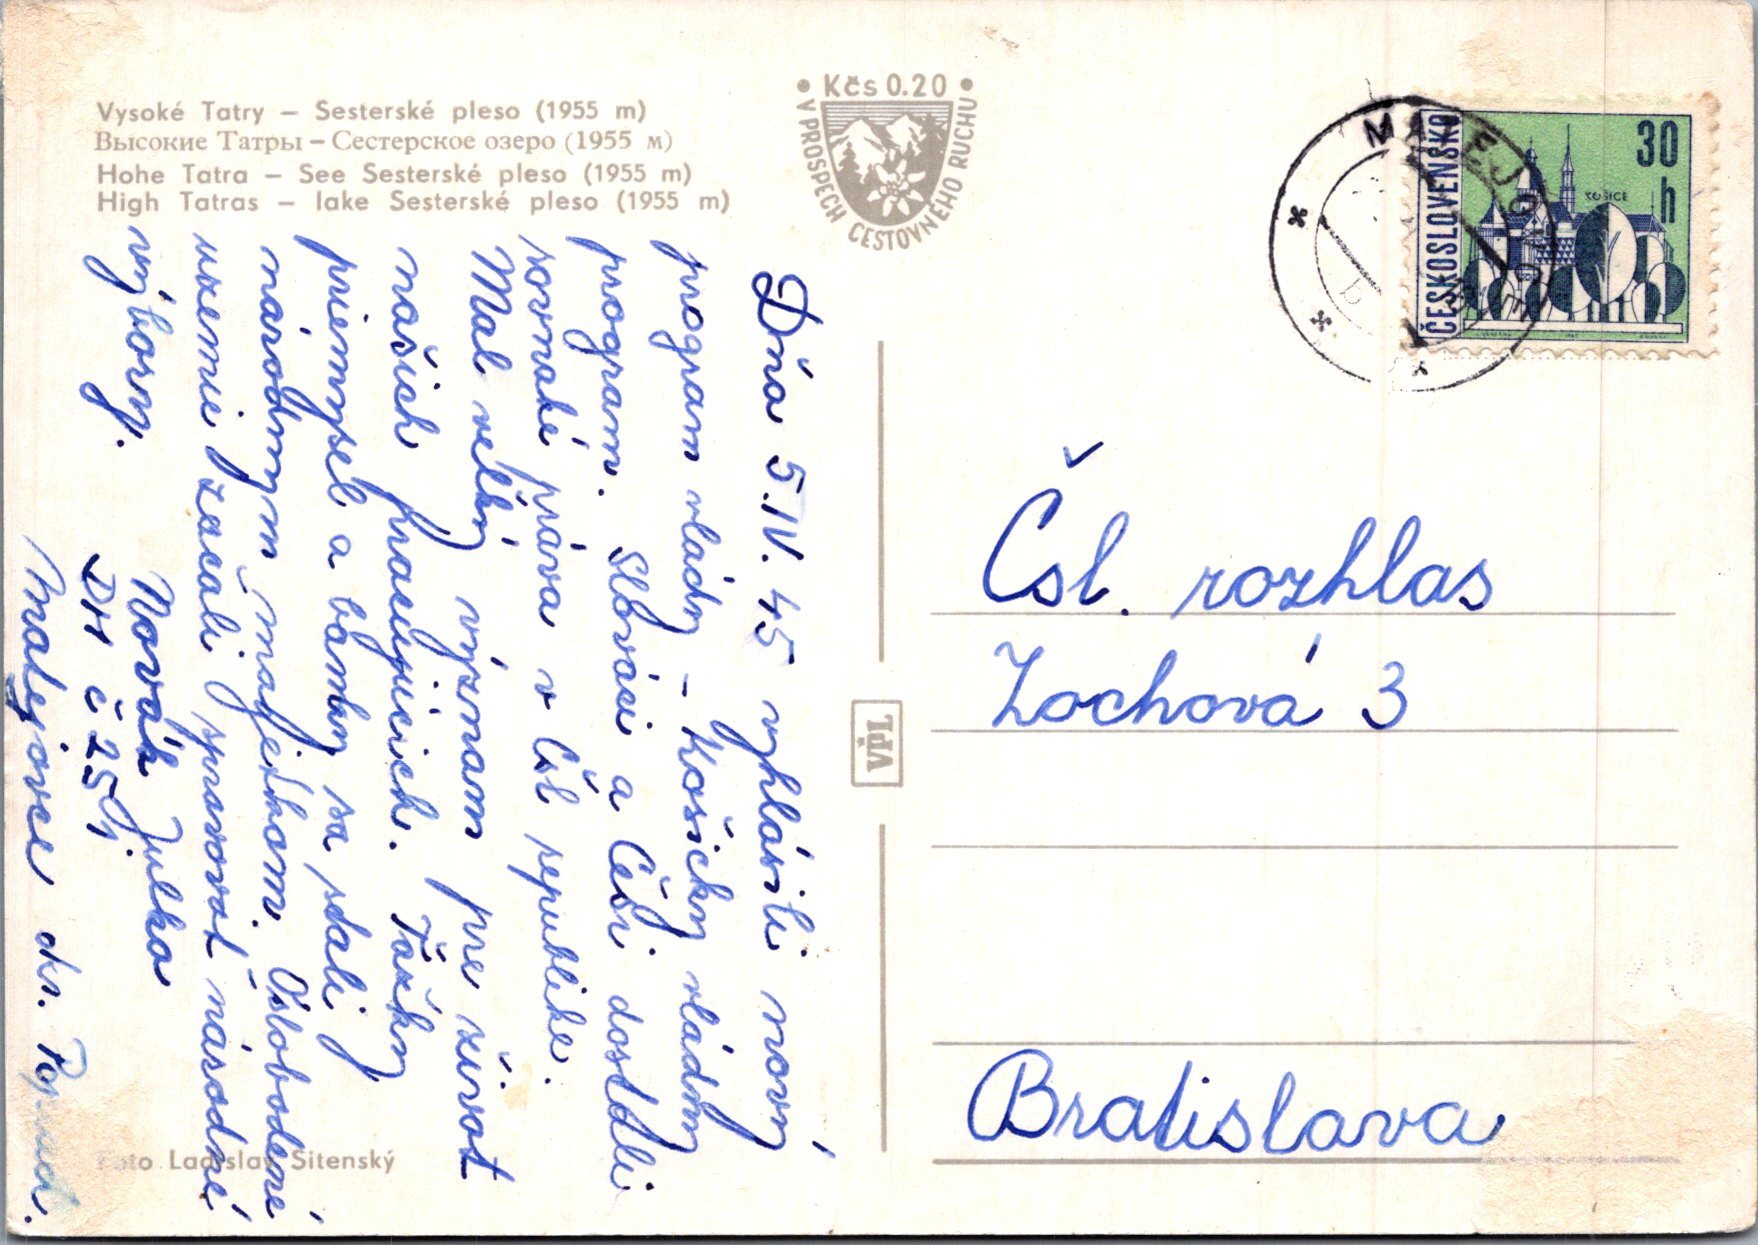 Vysoké Tatry – Sesterské pleso (1955 m)
Высокие Татры – Сестерское озеро (1955 м)
Hohe Tatra – See Sesterské pleso (1955 m)
High Tatras – lake Sesterské pleso (1955 m)
• Kčs 0.20 •
V PROSPECH CESTOVNÉHO RUCHU
ČESKOSLOVENSKO
30
h
KOŠICE
Dňa 5.IV.45 vyhlásili nový
program vlády – Košický vládny
program. Slováci a Česi dostali
rovnaké práva v Čsl republike.
Mal velký význam pre život
našich pracujúcich. Ťažký
priemysel a banky sa stali
národným majetkom. Oslobodené
územie začali spravovať národné
výbory.
Novák Julko
DH č 251
Matejovce okr. Poprad.
VPL
Čsl. rozhlas
Zochová 3
Bratislava
Foto Ladislav Sitenský